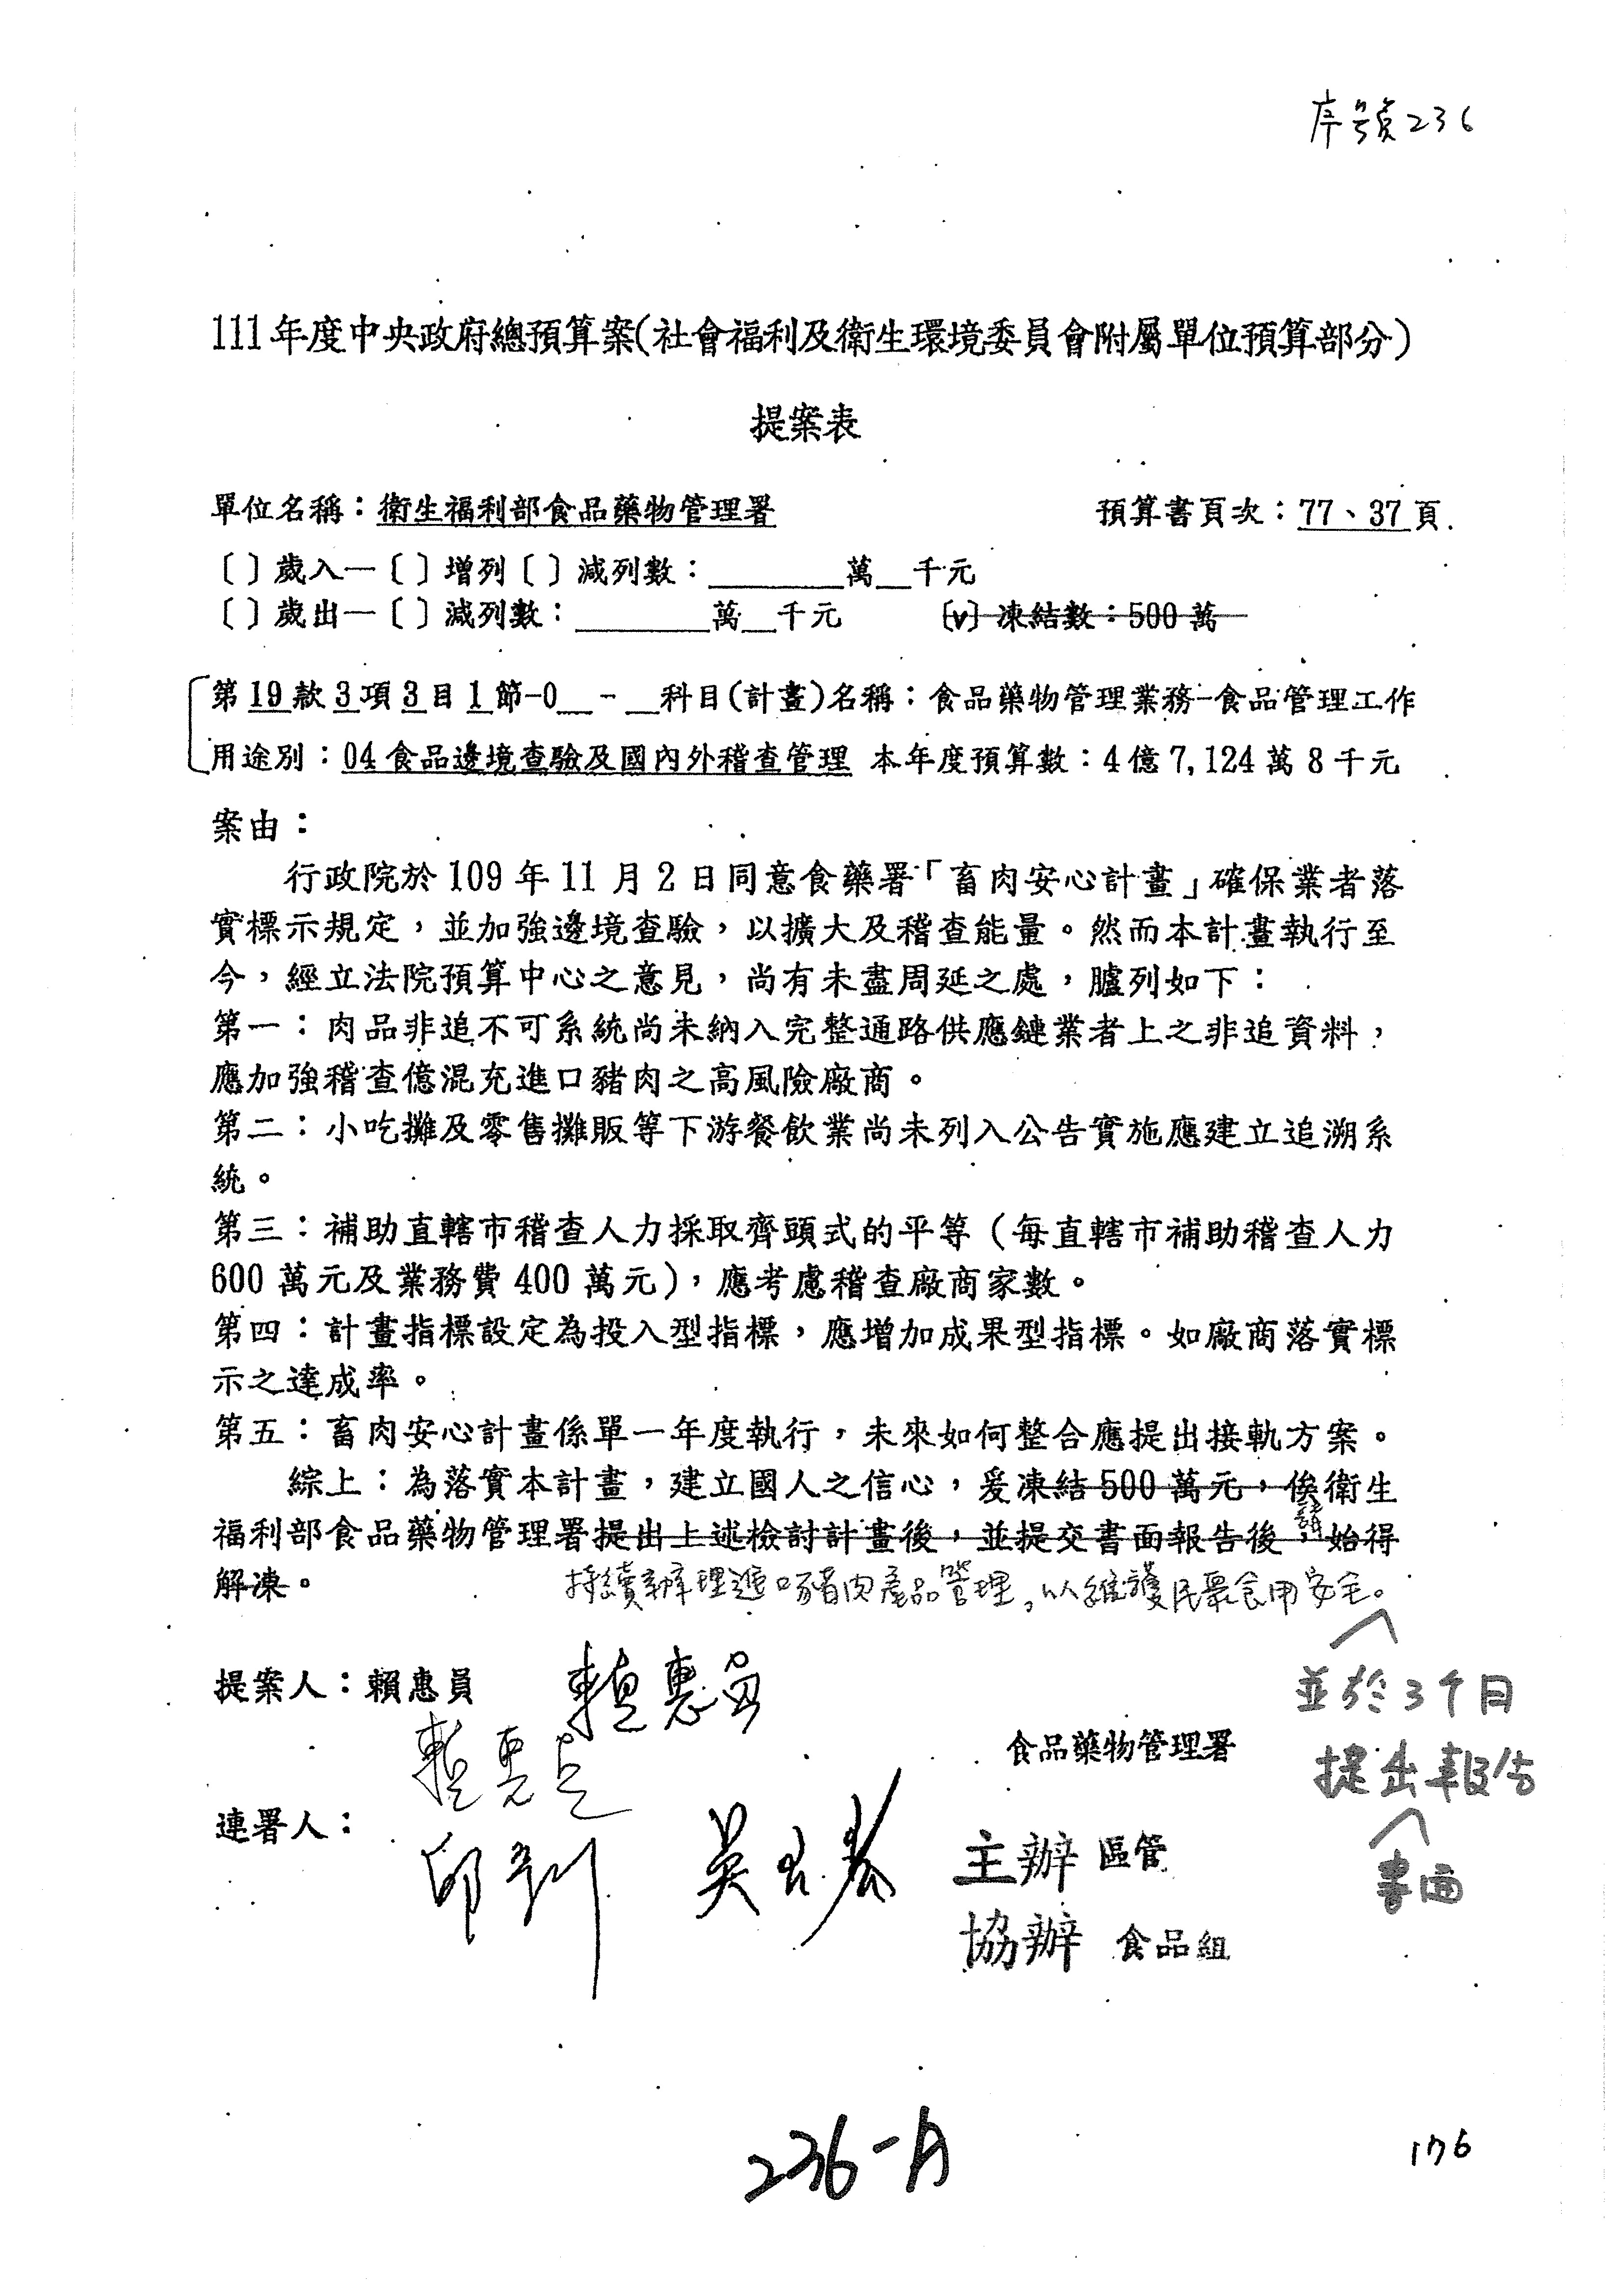 序號236
111年度中央政府總預算案(社會福利及衛生環境委員會附屬單位預算部分)
提案表
單位名稱：衛生福利部食品藥物管理署 預算書頁次：77、37頁
〔〕歲入—〔〕增列〔〕減列數：________萬__千元
〔〕歲出—〔〕減列數：________萬__千元 〔v〕凍結數：500萬
第19款3項3目1節-0__-__科目(計畫)名稱：食品藥物管理業務-食品管理工作
用途別：04食品邊境查驗及國內外稽查管理 本年度預算數：4億7,124萬8千元
案由：
行政院於109年11月2日同意食藥署「畜肉安心計畫」確保業者落
實標示規定，並加強邊境查驗，以擴大及稽查能量。然而本計畫執行至
今，經立法院預算中心之意見，尚有未盡周延之處，臚列如下：
第一：肉品非追不可系統尚未納入完整通路供應鏈業者上之非追資料，
應加強稽查億混充進口豬肉之高風險廠商。
第二：小吃攤及零售攤販等下游餐飲業尚未列入公告實施應建立追溯系
統。
第三：補助直轄市稽查人力採取齊頭式的平等（每直轄市補助稽查人力
600萬元及業務費400萬元），應考慮稽查廠商家數。
第四：計畫指標設定為投入型指標，應增加成果型指標。如廠商落實標
示之達成率。
第五：畜肉安心計畫係單一年度執行，未來如何整合應提出接軌方案。
綜上：為落實本計畫，建立國人之信心，爰凍結500萬元，俟衛生
請
福利部食品藥物管理署提出上述檢討計畫後，並提交書面報告後，始得
解凍。 持續辦理進口豬肉產品管理，以維護民眾食用安全。
提案人：賴惠員 賴惠員
並於3个月
食品藥物管理署
提出報告
連署人：
主辦 區管
書面
協辦 食品組
236-A
176